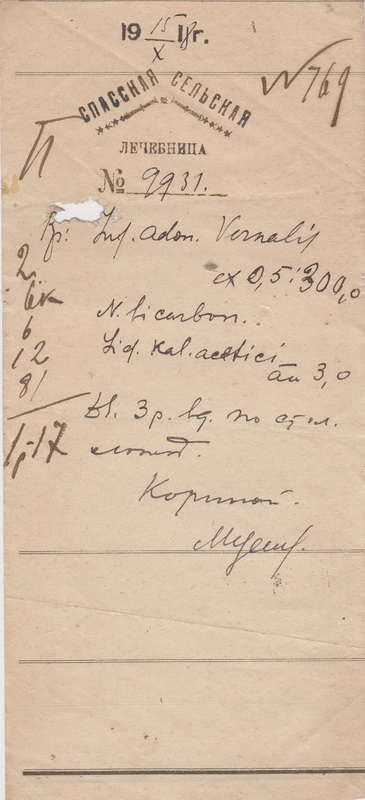 19 15/X 18 г.
№ 769
СПАССКАЯ СЕЛЬСКАЯ
ЛЕЧЕБНИЦА
П
№ 9931.
Rp: Inf. adon. Vernalis
ex 0,5 : 300,0
N. bicarbon.
Liq. Kal. acetici
āā 3,0
DS. 3 р. вд. по стол.
Кориной.
2
6к
6
12
81
1р-17